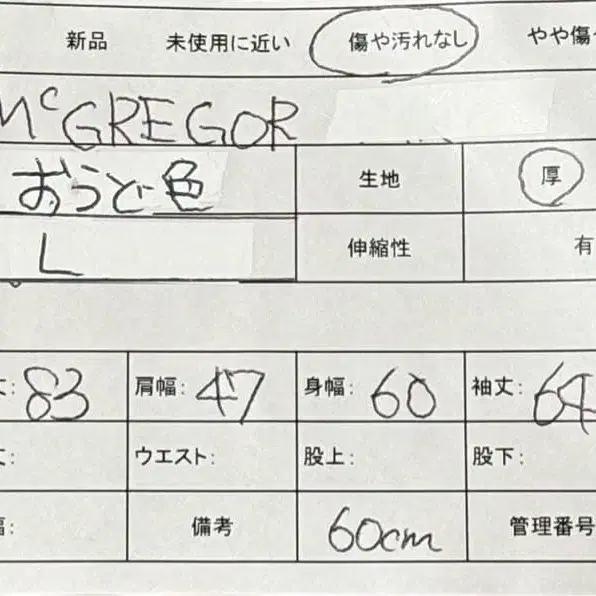 新品 未使用に近い 傷や汚れなし やや傷
McGREGOR
おうど色 生地 厚
L 伸縮性 有
丈: 83 肩幅: 47 身幅: 60 袖丈: 64
丈: ウエスト: 股上: 股下:
幅: 備考 60cm 管理番号